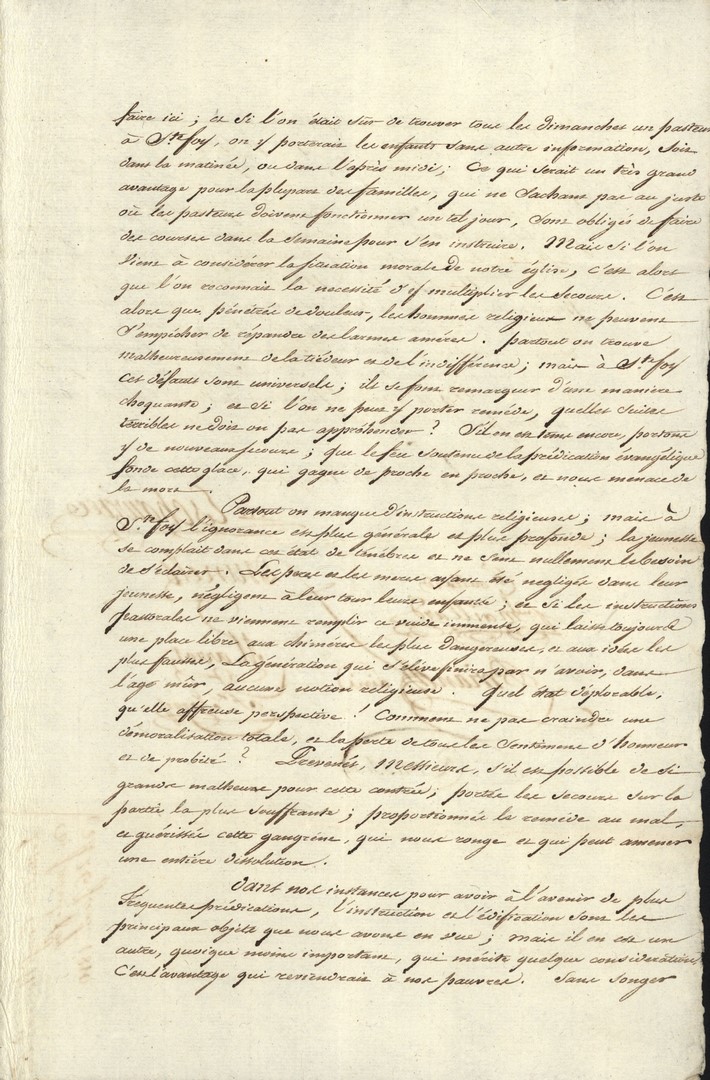 faire ici ; et si l'on était sûr de trouver tous les dimanches un pasteur
à S.te foy, on y porterait les enfants sans autre information, soit
dans la matinée, ou dans l'après midi ; Ce qui serait un très grand
avantage pour la plupart des familles, qui ne sachant pas au juste
où les pasteurs doivent fonctionner un tel jour, sont obligés de faire
des courses dans la semaine pour s'en instruire. Mais si l'on
vient à considérer la situation morale de notre église, c'est alors
que l'on reconnait la necessité d'y multiplier les secours. C'est
alors que pénétrés de douleur, les hommes religieux ne peuvent
s'empêcher de répandre des larmes amères. partout on trouve
malheureusement de la tiédeur et de l'indifférence ; mais à S.te foy
ces défauts sont universels ; ils se font remarquer d'une manière
choquante ; et si l'on ne peut y porter remède, quelles suites
terribles ne doit on pas appréhender ? S'il en est tems encore, portons
y de nouveaux secours ; que le feu soutenu de la prédication évangélique
fonde cette glace, qui gagne de proche en proche, et nous menace de
la mort.
Partout on manque d'instructions religieuses ; mais à
S.te foy l'ignorance est plus générale et plus profonde ; la jeunesse
se complait dans cet état de ténèbres et ne sent nullement le besoin
de s'éclairer. Les peres et les meres ayant été negligés dans leur
jeunesse, négligent à leur tour leurs enfants ; et si les instructions
pastorales ne viennent remplir ce vuide immense, qui laisse toujours
une place libre aux chimères les plus dangereuses, et aux idées les
plus fausses, La génération qui s'élève finira par n'avoir, dans
l'âge mûr, aucune notion religieuse. Quel état déplorable,
qu'elle affreuse perspective ! Comment ne pas craindre une
démoralisation totale, et la perte de tous les sentimens d'honneur
et de probité ? Prevenés, Messieurs, s'il est possible de si
grands malheurs pour cette contrée ; portés les secours sur la
partie la plus souffrante ; proportionnés le remède au mal,
et guérissés cette gangrène, qui nous ronge et qui peut amener
une entière dissolution.
Dans nos instances pour avoir à l'avenir de plus
fréquentes prédications, l'instruction et l'édification sont les
principaux objets que nous avons en vue ; mais il en est un
autre, quoique moins important, qui mérite quelque considération,
C'est l'avantage qui reviendrait à nos pauvres. Sans songer